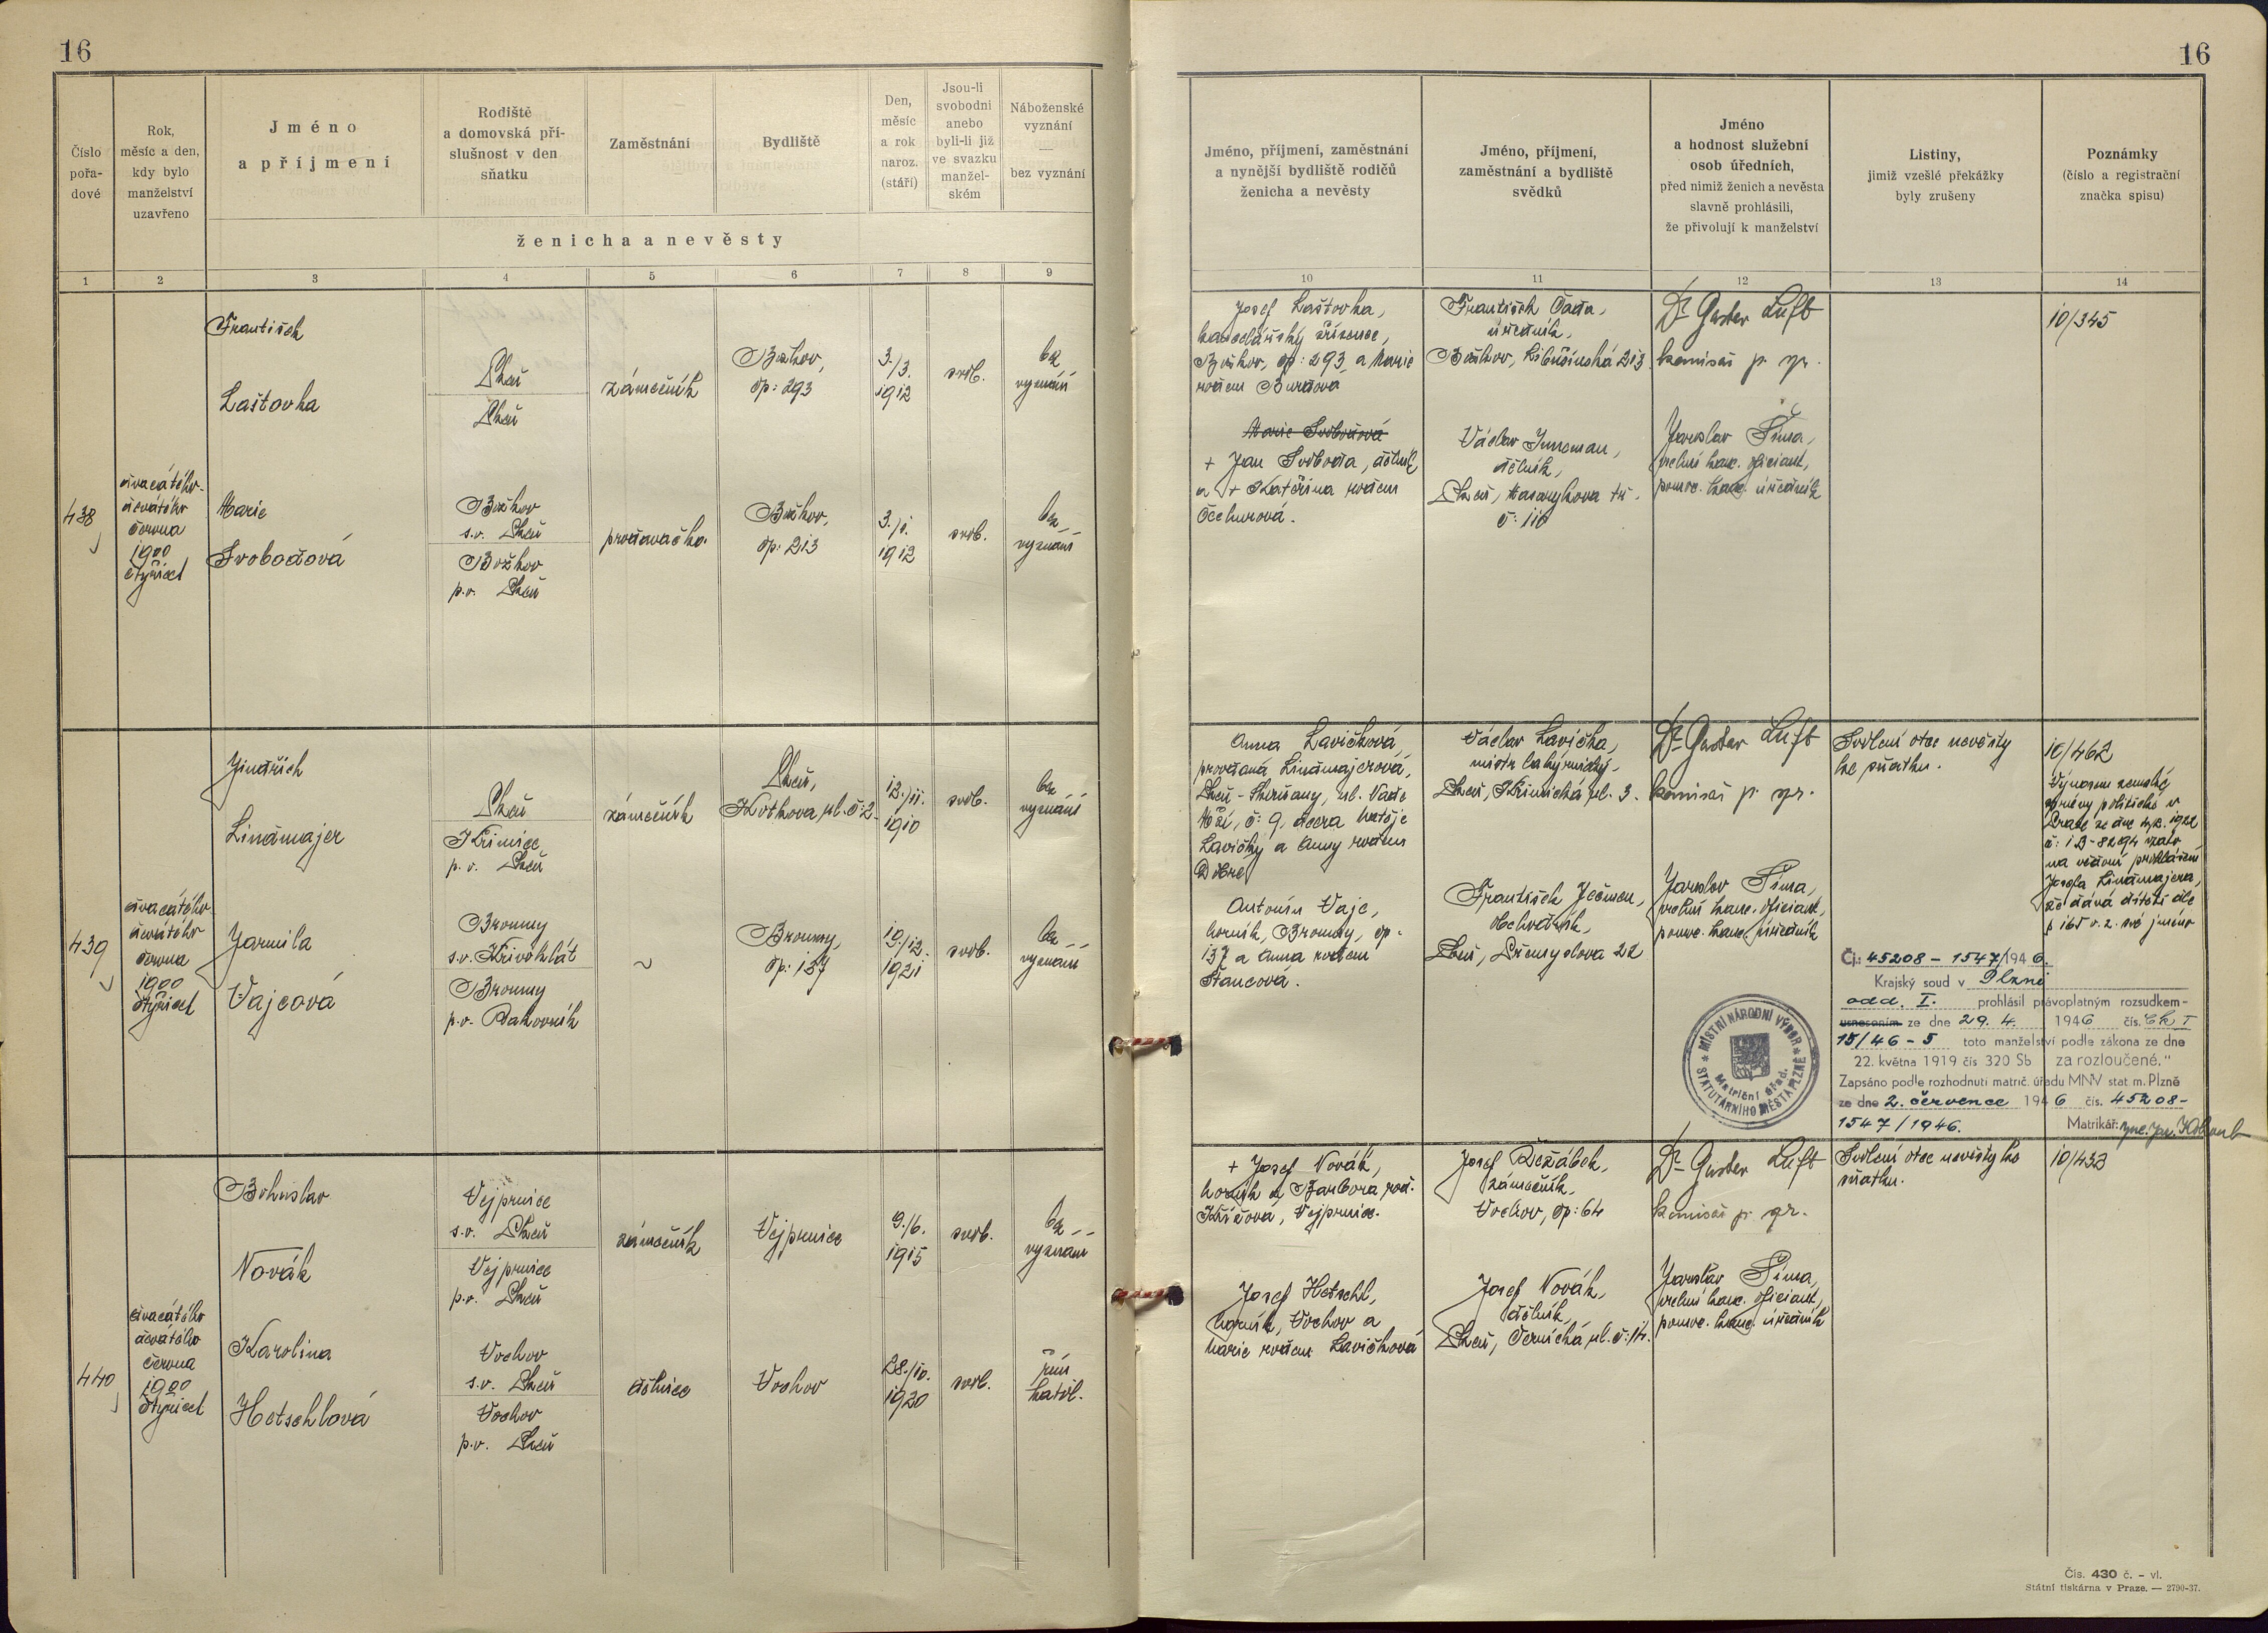 16
16
Číslo pořadové
Rok, měsíc a den, kdy bylo manželství uzavřeno
Jméno a příjmení
Rodiště a domovská příslušnost v den sňatku
Zaměstnání
Bydliště
Den, měsíc a rok naroz. (stáří)
Jsou-li svobodni anebo byli-li již ve svazku manželském
Náboženské vyznání — bez vyznání
ženicha a nevěsty
Jméno, příjmení, zaměstnání a nynější bydliště rodičů ženicha a nevěsty
Jméno, příjmení, zaměstnání a bydliště svědků
Jméno a hodnost služební osob úředních, před nimiž ženich a nevěsta slavně prohlásili, že přivolují k manželství
Listiny, jimiž vzešlé překážky byly zrušeny
Poznámky (číslo a registrační značka spisu)
1 2 3 4 5 6 7 8 9 10 11 12 13 14
438
dvacátého
devátého
června
1900
čtyřicet
František
Laštovka
Plzeň
Plzeň
zámečník
Božkov,
čp: 293
3./3.
1912
svob.
bez
vyznání
Marie
Svobodová
Božkov
s.o. Plzeň
Božkov
p.o. Plzeň
prodavačka
Božkov,
čp: 213
3./1.
1912
svob.
bez
vyznání
Josef Laštovka,
kancelářský zřízenec,
Božkov, čp: 293, a Marie
rodem Burdová
Marie Svobodová
+ Jan Svoboda, dělník
a + Kateřina rodem
František Čada,
úředník,
Božkov, Libušinská 213
Václav
dělník,
Plzeň, Masarykova tř.
č: 110
Dr Gustav Luft
komisař p. spr.
Jaroslav Šíma,
vrchní kanc. oficiant,
pomoc. kanc. úředník
10/345
439
dvacátého
devátého
června
1900
čtyřicet
Jindřich
Lindmajer
Plzeň
Křimice
p.o. Plzeň
zámečník
Plzeň,
Kotkova ul. č: 2
12./11.
1910
svob.
bez
vyznání
Jarmila
Vajcová
Broumy
s.o. Křivoklát
Broumy
p.o. Rakovník
~
Broumy,
čp: 137
19./12.
1921
svob.
bez
vyznání
Anna Lavičková,
provdaná Lindmajerová,
Plzeň-Skvrňany, ul. Nade
Mží, č: 9, dcera Matěje
Lavičky a Anny rodem
Antonín Vajc,
horník, Broumy, čp:
137 a Anna rodem
Štancová.
Václav Lavička,
mistr
Plzeň, Křimická ul. 3.
František Ječmen,
obchodník,
Plzeň, Přemyslova 22
Dr Gustav Luft
komisař p. spr.
Jaroslav Šíma,
vrchní kanc. oficiant,
pomoc. kanc. úředník
Svolení otce nevěsty
ke sňatku.
10/462
Výnosem zemské
správy politické v
Praze ze dne 1922
č: vzato
na vědomí prohlášení
Josefa Lindmajera,
že dává dítěti dle
§ 165 o.z. své jméno
Čj.: 45208 - 1547/1946.
Krajský soud v Plzni
odd. I. prohlásil právoplatným rozsudkem -
usnesením ze dne 29. 4. 1946 čís. Ck I
15/46 - 5 toto manželství podle zákona ze dne
22. května 1919 čís 320 Sb za rozloučené."
Zapsáno podle rozhodnutí matrič. úřadu MNV stat m. Plzně
ze dne 2. července 1946 čís. 45208-
1547/1946. Matrikář:
MÍSTNÍ NÁRODNÍ VÝBOR
STATUTÁRNÍHO MĚSTA PLZNĚ
Matriční úřad.
440
dvacátého
devátého
června
1900
čtyřicet
Bohuslav
Novák
Vejprnice
s.o. Plzeň
Vejprnice
p.o. Plzeň
zámečník
Vejprnice
9./6.
1915
svob.
bez
vyznání
Karolina
Hetschlová
Vochov
s.o. Plzeň
Vochov
p.o. Plzeň
dělnice
Vochov
28./10.
1920
svob.
řím.
katol.
+ Josef Novák,
horník a Barbora roz.
Křížová, Vejprnice.
Josef Hetschl,
horník, Vochov a
Marie rodem Lavičková
Josef Řežábek,
zámečník,
Vochov, čp: 64
Josef Novák,
dělník,
Plzeň, Černická ul. č: 14.
Dr Gustav Luft
komisař p. spr.
Jaroslav Šíma,
vrchní kanc. oficiant,
pomoc. kanc. úředník
Svolení otce nevěsty ke
sňatku.
10/433
Čis. 430 č. - vl.
Státní tiskárna v Praze. — 2790-37.